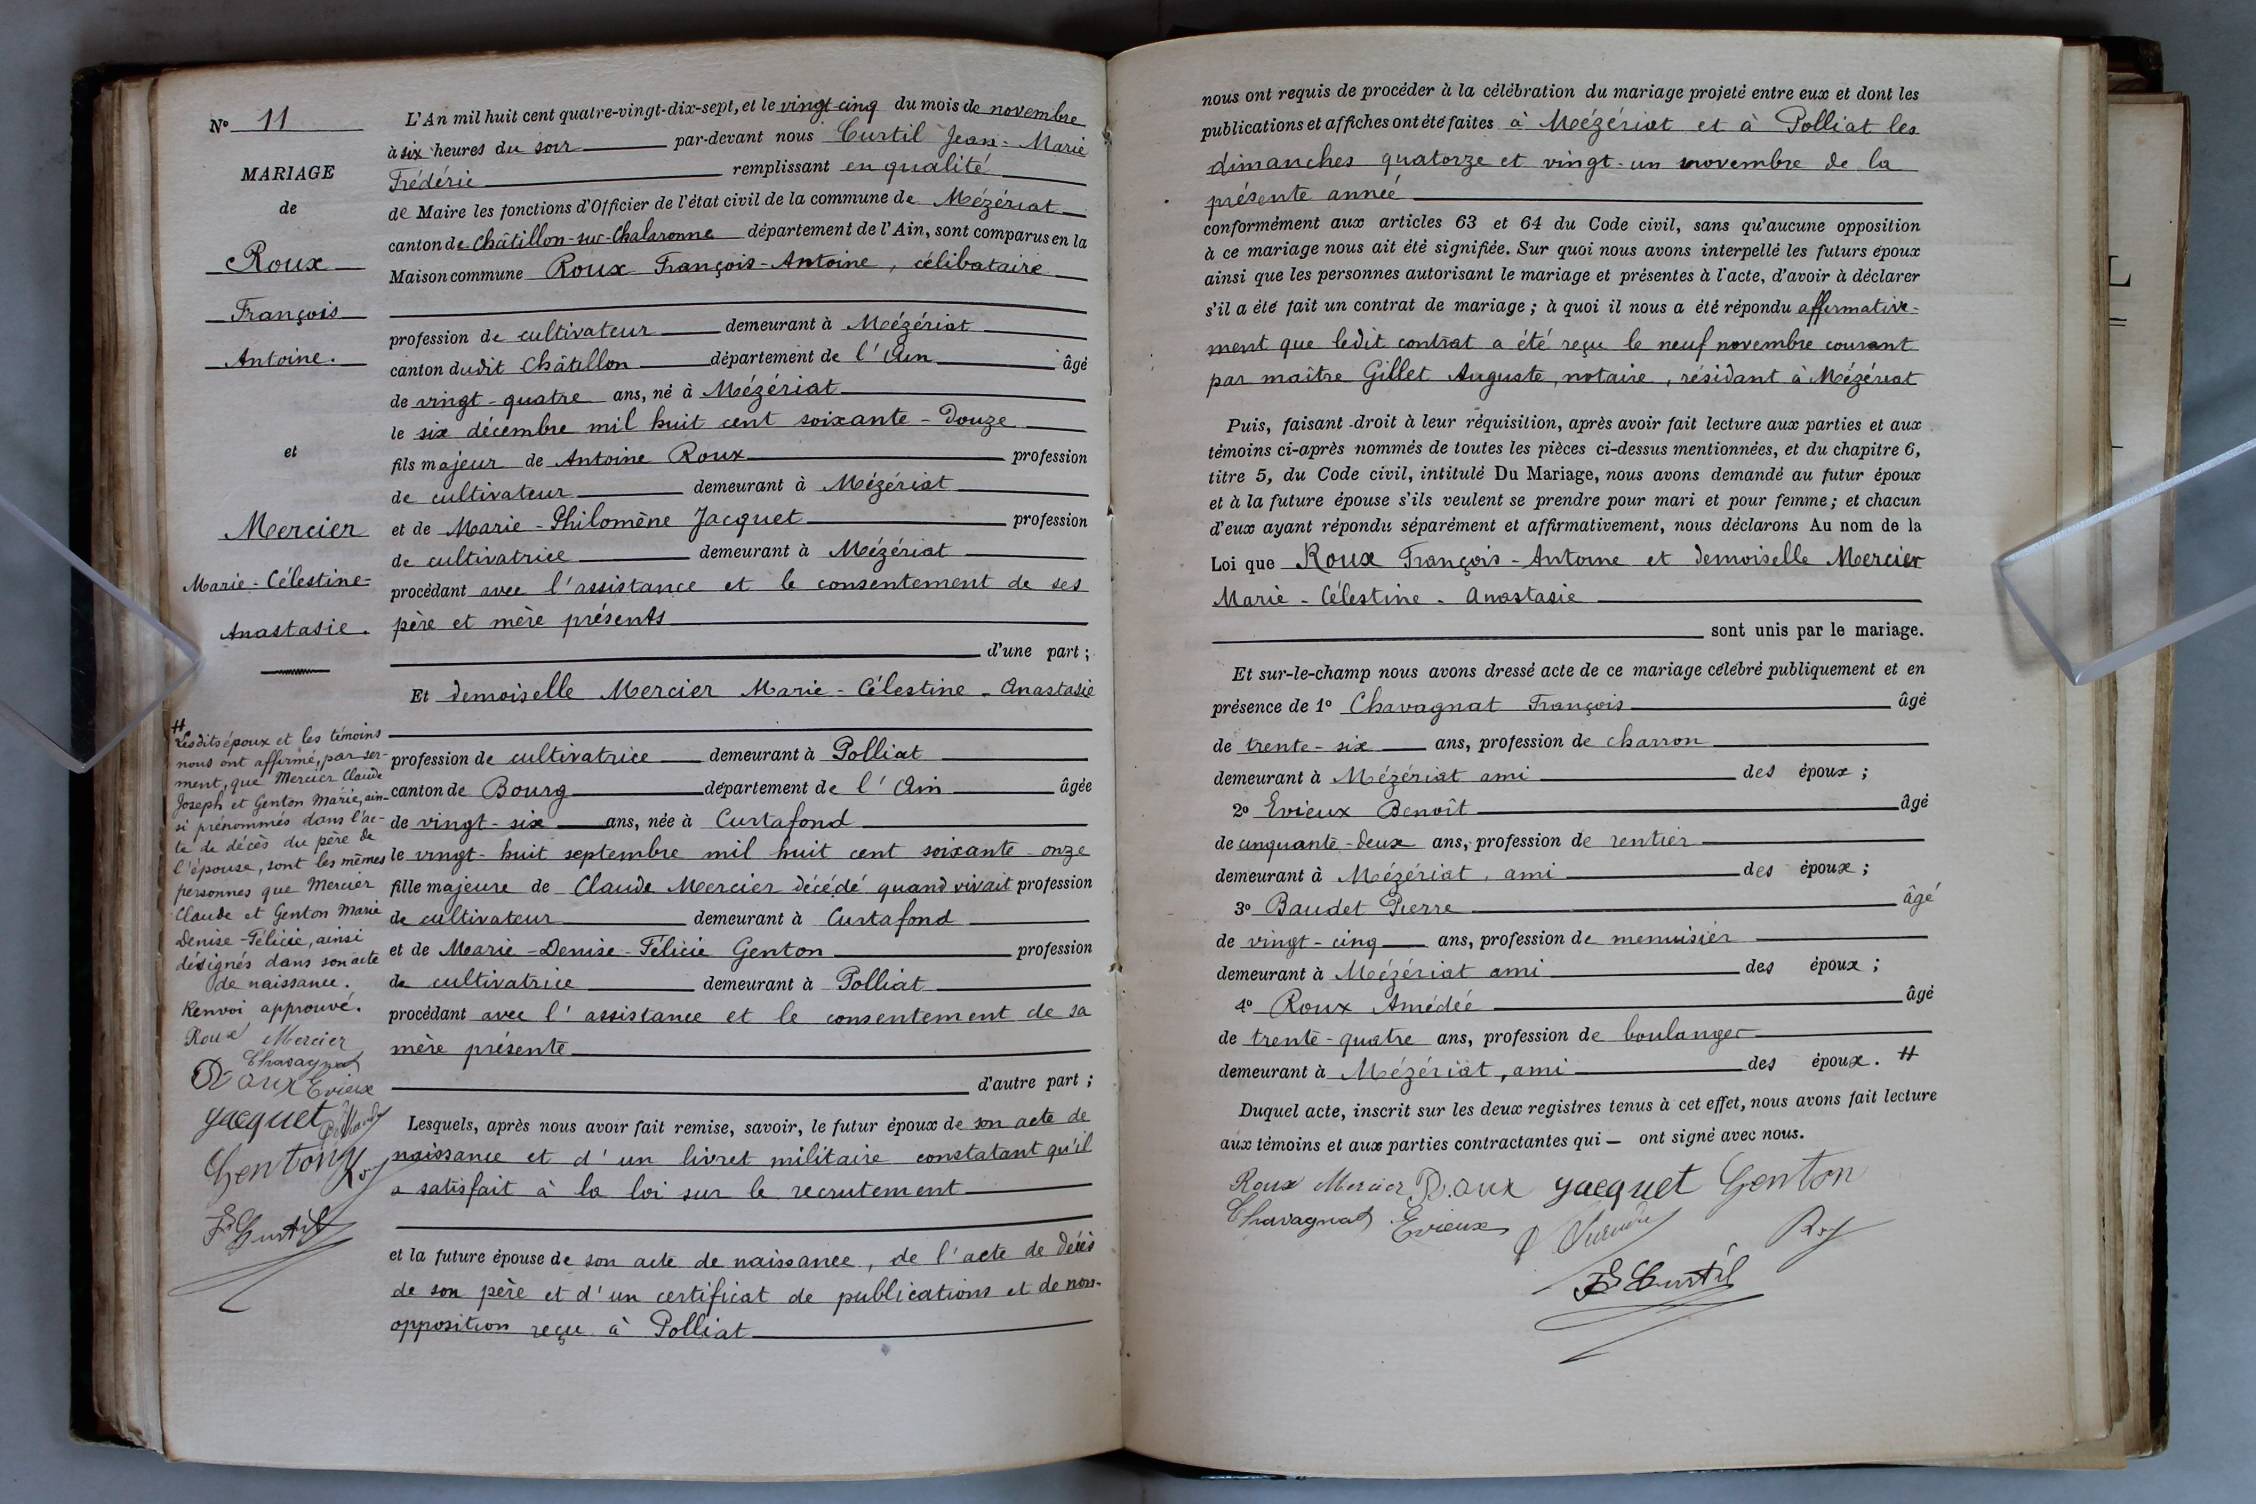 N° 11
MARIAGE
de
Roux
François
Antoine.
et
Mercier
Marie-Célestine-
Anastasie.
#
Lesdits époux et les témoins
nous ont affirmé, par ser-
ment, que Mercier Claude
Joseph et Genton Marie, ain-
si prénommés dans l'ac-
te de décès du père de
l'épouse, sont les mêmes
personnes que Mercier
Claude et Genton Marie
Denise-Félicie, ainsi
désignés dans son acte
de naissance.
Renvoi approuvé.
Roux Mercier
Chavagnat
Roux Evieux
Jacquet
Genton Roy
F Curtil
L'An mil huit cent quatre-vingt-dix-sept, et le vingt-cinq du mois de novembre
à six heures du soir par-devant nous Curtil Jean-Marie
Frédéric remplissant en qualité
de Maire les fonctions d'Officier de l'état civil de la commune de Mézériat
canton de Châtillon-sur-Chalaronne département de l'Ain, sont comparus en la
Maison commune Roux François-Antoine, célibataire
profession de cultivateur demeurant à Mézériat
canton dudit Châtillon département de l'Ain âgé
de vingt-quatre ans, né à Mézériat
le six décembre mil huit cent soixante-douze
fils majeur de Antoine Roux profession
de cultivateur demeurant à Mézériat
et de Marie-Philomène Jacquet profession
de cultivatrice demeurant à Mézériat
procédant avec l'assistance et le consentement de ses
père et mère présents
d'une part ;
Et demoiselle Mercier Marie-Célestine-Anastasie
profession de cultivatrice demeurant à Polliat
canton de Bourg département de l'Ain âgée
de vingt-six ans, née à Curtafond
le vingt-huit septembre mil huit cent soixante-onze
fille majeure de Claude Mercier décédé quand vivait profession
de cultivateur demeurant à Curtafond
et de Marie-Denise-Félicie Genton profession
de cultivatrice demeurant à Polliat
procédant avec l'assistance et le consentement de sa
mère présente
d'autre part ;
Lesquels, après nous avoir fait remise, savoir, le futur époux de son acte de
naissance et d'un livret militaire constatant qu'il
a satisfait à la loi sur le recrutement
et la future épouse de son acte de naissance, de l'acte de décès
de son père et d'un certificat de publications et de non-
opposition reçu à Polliat
nous ont requis de procéder à la célébration du mariage projeté entre eux et dont les
publications et affiches ont été faites à Mézériat et à Polliat les
dimanches quatorze et vingt-un novembre de la
présente année
conformément aux articles 63 et 64 du Code civil, sans qu'aucune opposition
à ce mariage nous ait été signifiée. Sur quoi nous avons interpellé les futurs époux
ainsi que les personnes autorisant le mariage et présentes à l'acte, d'avoir à déclarer
s'il a été fait un contrat de mariage ; à quoi il nous a été répondu affirmative-
ment que ledit contrat a été reçu le neuf novembre courant
par maître Gillet Auguste, notaire, résidant à Mézériat
Puis, faisant droit à leur réquisition, après avoir fait lecture aux parties et aux
témoins ci-après nommés de toutes les pièces ci-dessus mentionnées, et du chapitre 6,
titre 5, du Code civil, intitulé Du Mariage, nous avons demandé au futur époux
et à la future épouse s'ils veulent se prendre pour mari et pour femme ; et chacun
d'eux ayant répondu séparément et affirmativement, nous déclarons Au nom de la
Loi que Roux François-Antoine et demoiselle Mercier
Marie-Célestine-Anastasie
sont unis par le mariage.
Et sur-le-champ nous avons dressé acte de ce mariage célébré publiquement et en
présence de 1° Chavagnat François âgé
de trente-six ans, profession de charron
demeurant à Mézériat ami des époux ;
2° Evieux Benoît âgé
de cinquante-deux ans, profession de rentier
demeurant à Mézériat, ami des époux ;
3° Baudet Pierre âgé
de vingt-cinq ans, profession de menuisier
demeurant à Mézériat ami des époux ;
4° Roux Amédée âgé
de trente-quatre ans, profession de boulanger
demeurant à Mézériat, ami des époux. #
Duquel acte, inscrit sur les deux registres tenus à cet effet, nous avons fait lecture
aux témoins et aux parties contractantes qui — ont signé avec nous.
Roux Mercier Roux Jacquet Genton
Chavagnat Evieux Roy
F Curtil
L